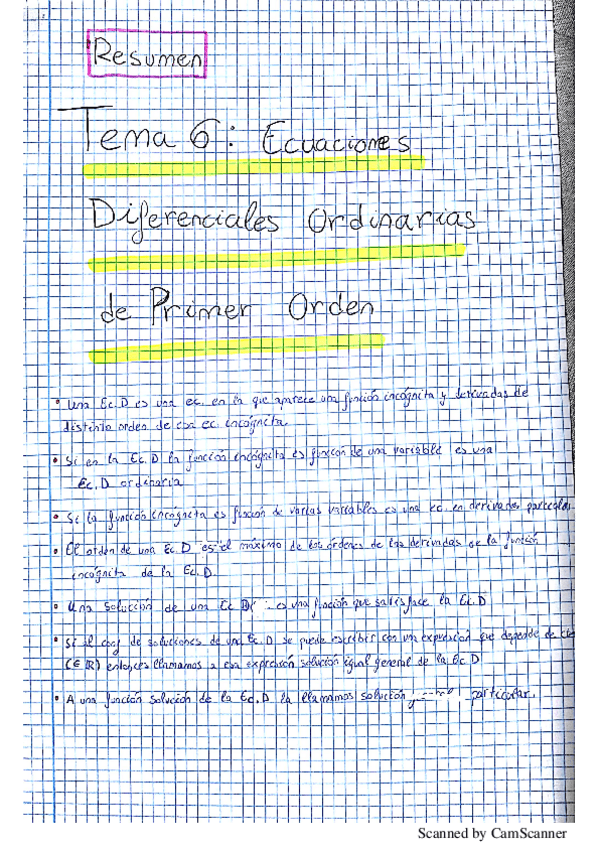 Resumen
Tema 6: Ecuaciones
Diferenciales Ordinarias
de Primer Orden
• Una Ec.D es una ec. en la que aparece una función incógnita y derivadas de
distinto orden de esa ec incógnita.
• Si en la Ec.D la función incógnita es función de una variable es una
Ec.D ordinaria
• Si la función incognita es función de varias variables es una ec. en derivadas parciales
• El orden de una Ec.D es el máximo de los órdenes de las derivadas de la función
incógnita de la Ec.D.
• Una solución de una Ec D es una función que satisface la Ec.D
• Si el conj de soluciones de una Ec.D se puede escribir con una expresión que depende de
(∈ℝ) entonces llamamos a esa expresión solución igual general de la Ec D
• A una función solución de la Ec.D la llamamos solución particular.
Scanned by CamScanner